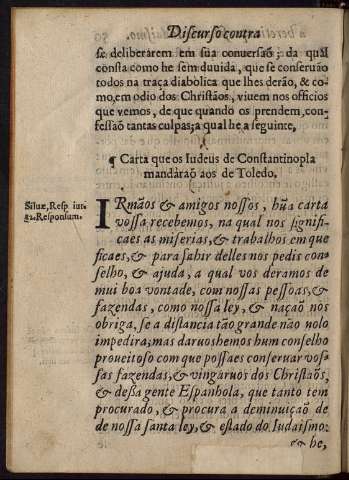 Discurso contra
se deliberarem em sua conuersaõ; da qual
consta como he sem duuida, que se conseruaõ
todos na traça diabolica que lhes deraõ, & co-
mo, em odio dos Christãos, viuem nos officios
que vemos, de que quando os prendem, con-
fessaõ tantas culpas; a qual he a seguinte,
¶ Carta que os Iudeus de Constantinopla
mandàraõ aos de Toledo.
Siluæ, Resp iur-
ga. Responsum.
IRmãos & amigos nossos, hũa carta
vossa recebemos, na qual nos signifi-
caes as miserias, & trabalhos em que
ficaes, & para sahir delles nos pedis con-
selho, & ajuda, a qual vos deramos de
mui boa vontade, com nossas pessoas, &
fazendas, como nossa ley, & naçaõ nos
obriga, se a distancia tão grande não uolo
impedira; mas daruoshemos hum conselho
proueitoso com que possaes conseruar vos-
sas fazendas, & vingàruos dos Christãos,
& dessa gente Espanhola, que tanto tem
procurado, & procura a deminuição de
de nossa santa ley, & estado do Iudaismo:
& he,